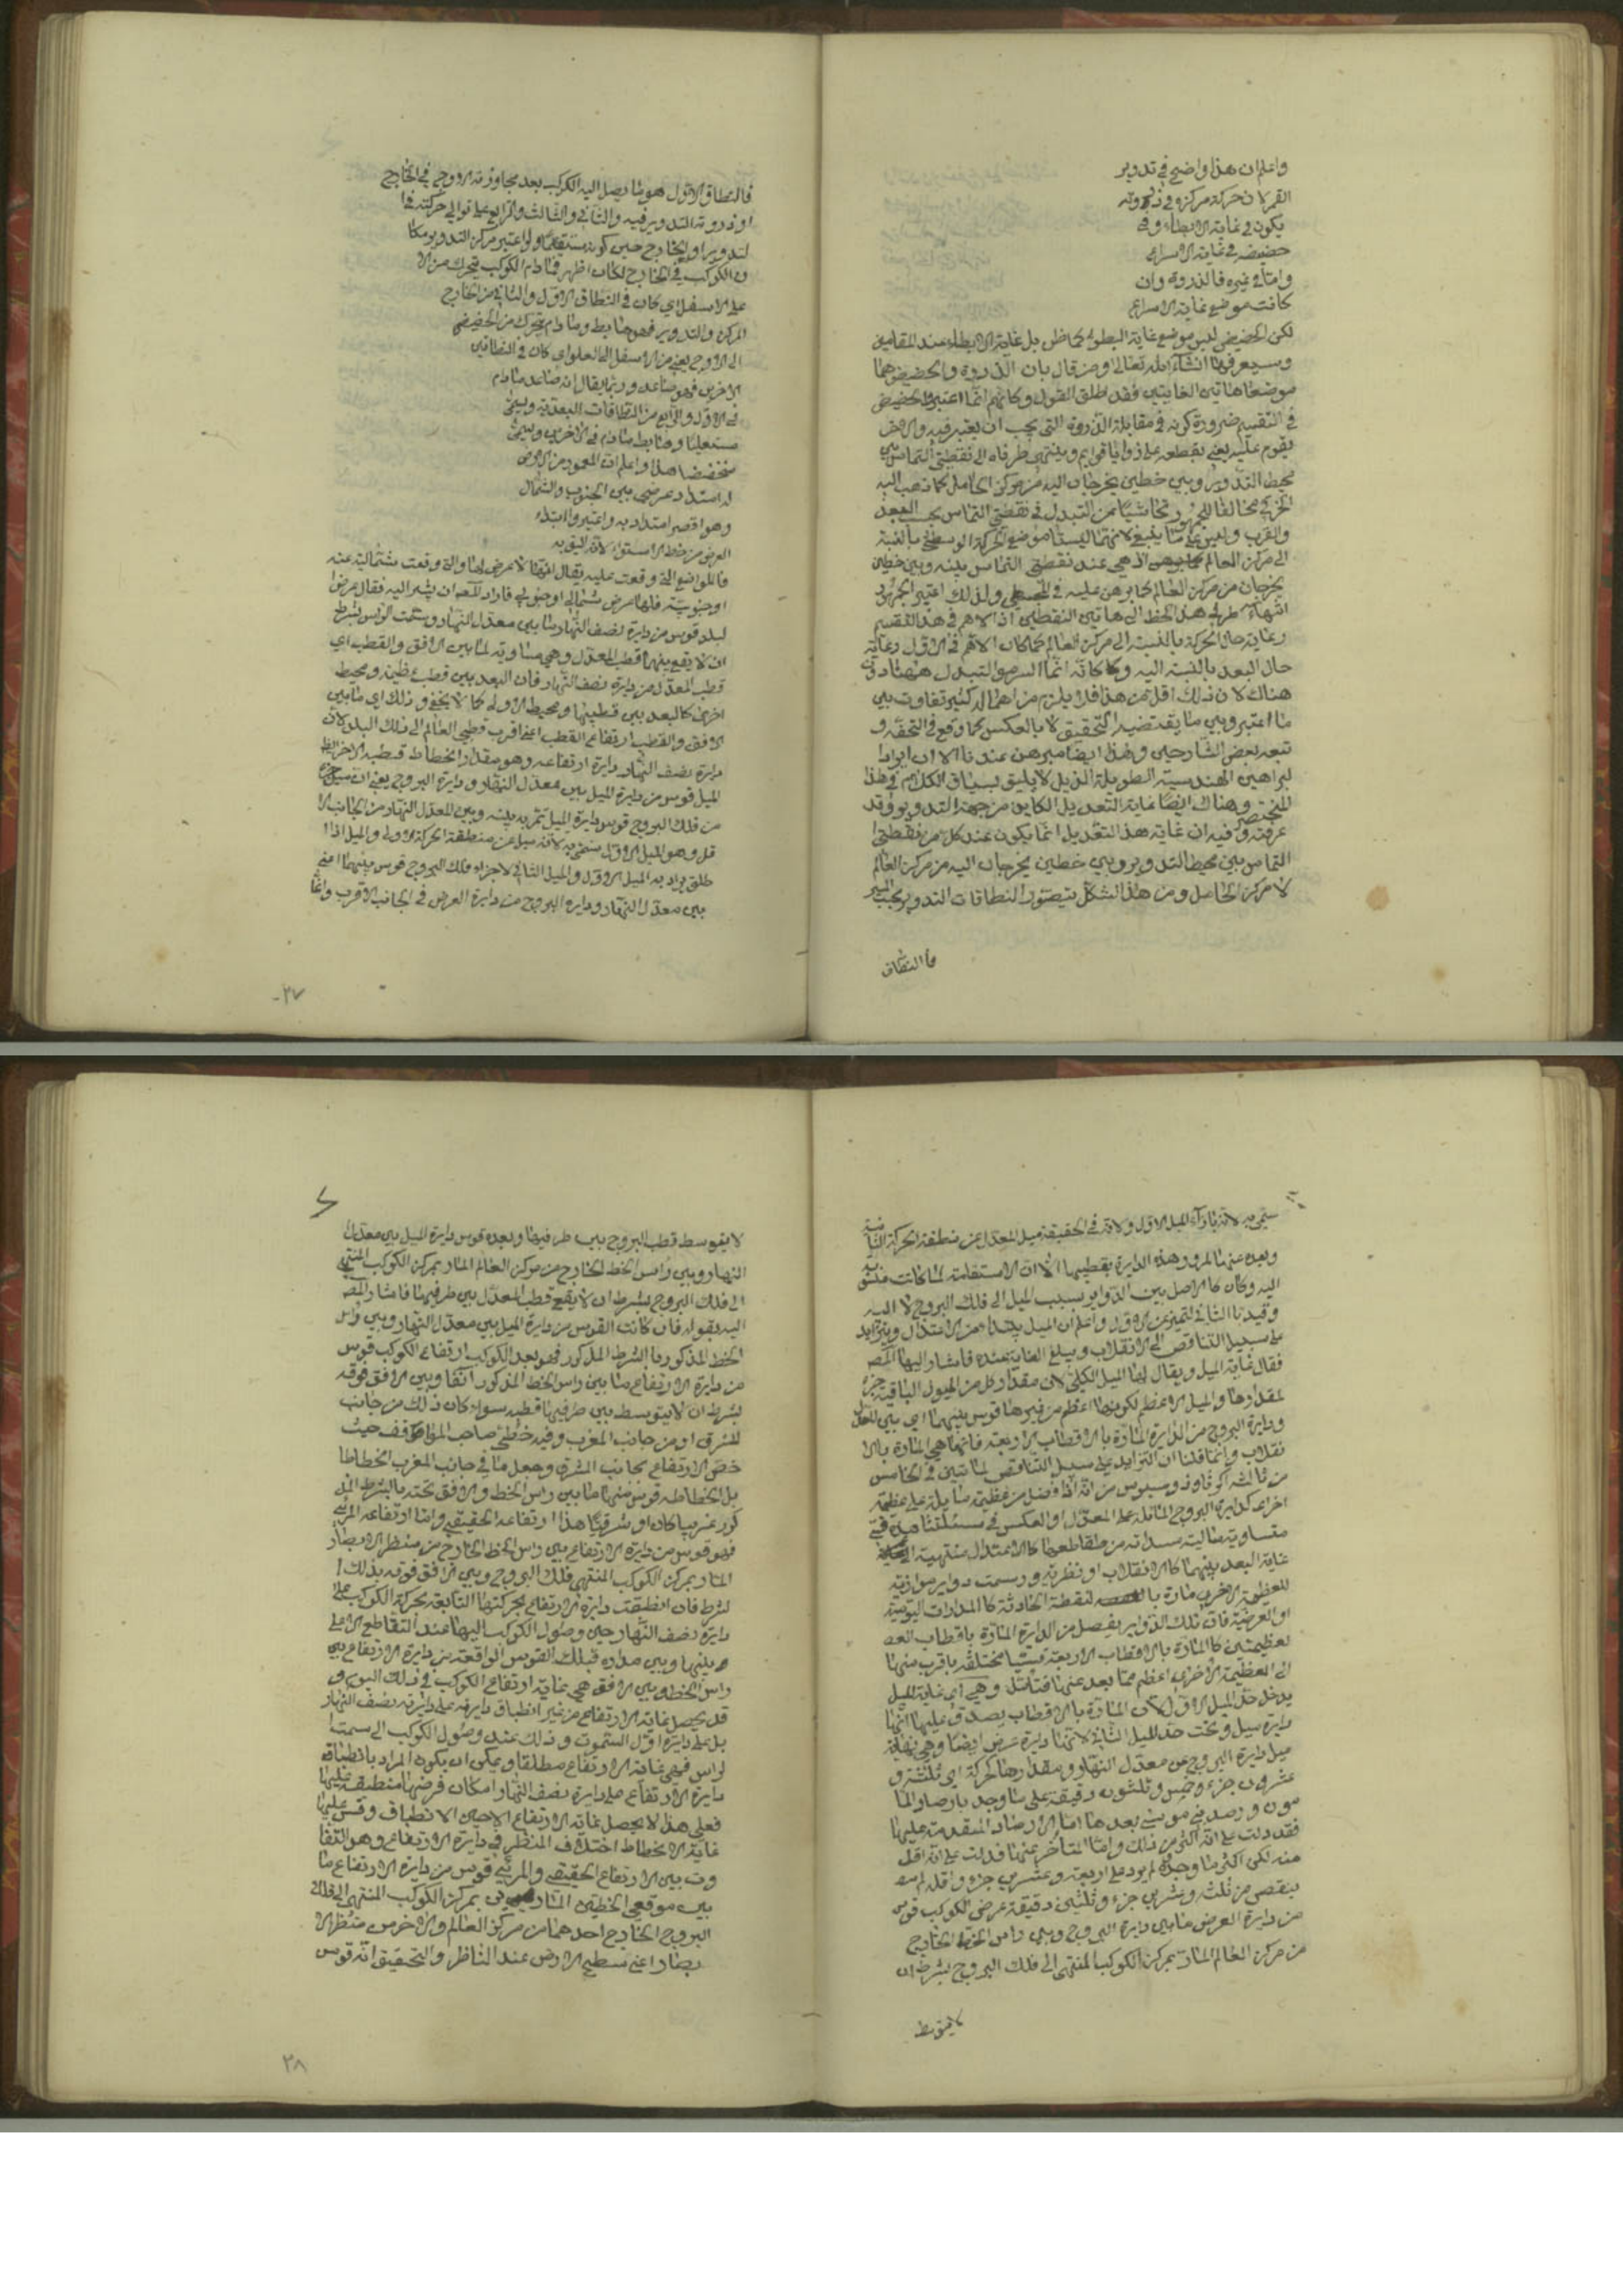 واعلم ان هذا واضح في تدوير
القمر لان حركة مركزه في ذروته
يكون في غاية الابطاء وفي
حضيضه في غاية الاسراع
واما في غيره فالذروة وان
كانت موضع غاية الاسراع
لكن الحضيض ليس موضع غاية البطؤ كما ظن بل غاية الابطاء عند المقامين
وسيعرفها انشاء الله تعالى ومن قال بان الذروة والحضيض هما
موضعا هاتين الغايتين فقد اطلق القول وكانهم انما اعتبروا الحضيض
في التقسيم ضرورة كونه في مقابلة الذروة التي يجب ان يعتبر فيه والاخر
يقوم عليه يعني يقطعه على زوايا قوايم وينتهي طرفاه الى نقطتي التماس بين
محيط التدوير وبين خطين يخرجان اليه من مركز الحامل كما ذهب اليه
الخرقي مخالفا للجمهور تحاشيا من التبدل في نقطتي التماس بحسب البعد
والقرب وليس على ما ينبغي لانهما ليستا موضع الحركة الوسطى بالنسبة
الى مركز العالم اذ هي عند نقطتي التماس بينه وبين خطين
يخرجان من مركز العالم كما برهن عليه في المجسطي ولذلك اعتبر الجمهور
انتهاء طرفي هذا الخط الى هاتين النقطتين اذ الاهم في هذا التقسيم
رعاية حال الحركة بالنسبة الى مركز العالم كما كان الاهم في الاول رعاية
حال البعد بالنسبة اليه وكما كانه انما السر هو التبدل ههنا دون
هناك لان ذلك اقل من هذا فلا يلزم من اهماله كثير تفاوت بين
ما اعتبر وبين ما يقتضيه التحقيق لا بالعكس كما وقع في التحفة و
تبعه بعض الشارحين وهذا ايضا مبرهن عندنا الا ان ايراد
البراهين الهندسية الطويلة الذيل لا يليق بسياق الكلام في هذا
المختصر وهناك ايضا غاية التعديل الكاين من جهة التدوير وقد
عرفته وفيه ان غاية هذا التعديل انما يكون عند كل من نقطتي
التماس بين محيط التدوير وبين خطين يخرجان اليه من مركز العالم
لا مركز الحامل ومن هذا الشكل يتصور النطاقات التدوير بحسب المسير
فالنطاق
فالنطاق الاول هو ما يصل اليه الكوكب بعد مجاوزته الاوج في الخارج
او ذروة التدوير فيه والثاني والثالث والرابع على توالي حركته في ا
لتدوير او الخارج حين كونه مستقيما ولو اعتبر مركز التدوير مكا
ن الكوكب في الخارج لكان اظهر فما دام الكوكب يتحرك من الا
على الاسفل اي كان في النطاق الاول والثاني من الخارج
المركز والتدوير فهو هابط وما دام يتحرك من الحضيض
الى الاوج يعني من الاسفل الى العلو اي كان في النطاقين
الاخرين فهو صاعد وربما يقال انه صاعد ما دام
في الاول والرابع من النطاقات البعدية ويسمى
مستعليا وهابط ما دام في الاخرين ويسمى
منخفضا هذا واعلم ان المعمور من الارض
له امتداد عرضي بين الجنوب والشمال
وهو اقصر امتداديه واعتبروا ابتداء
العرض من خط الاستواء لانه اليق به
فالمواضع التي وقعت عليه يقال انها لا عرض لها والتي وقعت شمالية عنه
او جنوبية فلها عرض شمالي او جنوبي فاراد المصـ ان يشير اليه فقال عرض ا
لبلد قوس من دايرة نصف النهار ما بين معدل النهار وسمت الراس بشرط
ان لا يقع بينهما قطب المعدل وهي مساوية لما بين الافق والقطب اي
قطب المعدل من دايرة نصف النهار فان البعد بين قطب عظيمة ومحيط
اخرى كالبعد بين قطبها ومحيط الاولى كما لا يخفى وذلك اي ما بين
الافق والقطب ارتفاع القطب اعني اقرب قطبي العالم الى ذلك البلد لان
دايرة نصف النهار دايرة ارتفاعه وهو مقدار انحطاط قطبه الاخر ايضا
الميل قوس من دايرة الميل بين معدل النهار ودايرة البروج يعني ان ميل جزء
من فلك البروج قوس دايرة الميل تمر به بينه وبين المعدل النهار من الجانب الا
قل وهو الميل الاول سمي به لانه ميل عن منطقة الحركة الاولى والميل اذا ا
طلق يراد به الميل الاول والميل الثاني لاجزاء فلك البروج قوس بينهما اعني
بين معدل النهار ودايرة البروج من دايرة العرض في الجانب الاقرب وانما
٢٧
سمي به لانه بازاء الميل الاول ولانه في الحقيقة ميل المعدل عن منطقة الحركة الثانية
وبعده عنها لمرور هذه الدايرة بقطبيها الا ان الاستقامة لما كانت منسوبة
اليه وكان كالاصل بين الدواير نسب الميل الى فلك البروج لا اليه
وقيد بالثاني لتميز عن الاول واعلم ان الميل يبتداء من الاعتدال ويتزايد
على سبيل التناقص الى الانقلاب ويبلغ الغاية عنده فاشار اليها المصـ
فقال غاية الميل ويقال لها الميل الكلي لان مقدار كل من الميول الباقية جزء
لمقدارها والميل الاعظم لكونها اعظم من غيرها قوس بينهما اي بين المعدل
ودايرة البروج من الدايرة المارة بالاقطاب الاربعة فانها هي المارة بالا
نقلاب وانما قلنا ان التزايد على سبيل التناقص لما تبين في الخامس
من ثالثة اكر ثاوذوسيوس من انه اذا فصل من عظيمة مايلة على عظيمة
اخرى كدايرة البروج المائلة على المعدل او العكس في مسئلتنا هذه قسي
متساوية متتالية مبتدأة من تقاطعهما كالاعتدال منتهية الى
غاية البعد بينهما كالانقلاب او نظيرته ورسمت دواير موازية
للعظيمة الاخرى مارة بالنقطة الحادثة كالمدارات اليومية
او العرضية فان تلك الدواير يفصل من الدايرة المارة باقطاب الع
لعظيمتين كالمارة بالاقطاب الاربعة قسيا مختلفة ما قرب منها
الى العظيمة الاخرى اعظم مما بعد عنها فتأمل وهي اي غاية الميل
يدخل حد الميل الاول لان المارة بالاقطاب يصدق عليها انها
دايرة ميل وتحت حد الميل الثاني لانها دايرة عرض ايضا وهي نهاية
ميل دايرة البروج عن معدل النهار ومقدارها كحركة اي ثلثة و
عشرون جزء وخمس وثلثون دقيقة على ما وجد بارصاد الما
مون ورصد بني موسى بعدها اما الارصاد المتقدمة عليها
فقد دلت على انه اكثر من ذلك واما المتأخر عنها فدلت على انه اقل
منه لكن اكثر ما وجدوه لم يزد على اربعة وعشرين جزء واقله لم
ينقص من ثلثة وعشرين جزء وثلثين دقيقة عرض الكوكب قوس
من دايرة العرض ما بين دايرة البروج وبين راس الخط الخارج
من مركز العالم المار بمركز الكوكب المنتهي الى فلك البروج بشرط ان
لا يتوسط
لا يتوسط قطب البروج بين طرفيها وبعده قوس دايرة الميل بين معدل
النهار وبين راس الخط الخارج من مركز العالم المار بمركز الكوكب المنتهي
الى فلك البروج بشرط ان لا يقع قطب المعدل بين طرفيها فاشار المصـ
اليه بقوله فان كانت القوس من دايرة الميل بين معدل النهار وبين راس
الخط المذكور بالشرط المذكور فهو بعد الكوكب ارتفاع الكوكب قوس
من دايرة الارتفاع ما بين راس الخط المذكور آنفا وبين الافق فوقه
بشرط ان لا يتوسط بين طرفيها قطبه سواء كان ذلك من جانب
المشرق او من جانب المغرب وفيه خطئ صاحب المواقف حيث
خص الارتفاع بجانب المشرق وجعل ما في جانب المغرب انحطاطا
بل انحطاطه قوس منها ما بين راس الخط والافق تحته بالشرط المذ
كور غربيا كان او شرقيا هذا ارتفاعه الحقيقي واما ارتفاعه المرئي
فهو قوس من دايرة الارتفاع بين راس الخط الخارج من منظر الابصار
المار بمركز الكوكب المنتهي فلك البروج وبين الافق فوقه بذلك ا
لشرط فان انطبقت دايرة الارتفاع بحركتها التابعة بحركة الكوكب على
دايرة نصف النهار حين وصول الكوكب اليها عند التقاطع الاعلى
بينها وبين مداره فتلك القوس الواقعة من دايرة الارتفاع بين
راس الخط وبين الافق هي غاية ارتفاع الكوكب في ذلك اليوم و
قد يحصل غاية الارتفاع من غير انطباق دايرته على دايرة نصف النهار
بل على دايرة اول السموت وذلك عند وصول الكوكب الى سمت ا
لراس فهي غاية الارتفاع مطلقا ويمكن ان يكون المراد بانطباق
دايرة الارتفاع على دايرة نصف النهار امكان فرضها منطبقة عليها
فعلى هذا لا يحصل غاية الارتفاع الا حين الانطباق وقس عليها
غاية الانحطاط اختلاف المنظر في دايرة الارتفاع وهو التفا
وت بين الارتفاع الحقيقي والمرئي قوس من دايرة الارتفاع ما
بين موقعي الخطين المارين بمركز الكوكب المنتهي الى فلك
البروج الخارج احدهما من مركز العالم والاخر من منظر الا
بصار اعني سطح الارض عند الناظر والتحقيق انه قوس
٢٨